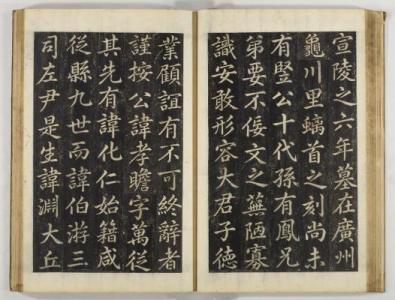 宣陵之六年墓在廣州
龜川里螭首之刻尚未
有豎公十代孫有鳳兄
弟要不佞文之蕪陋寡
識安敢形容大君子德
業顧誼有不可終辭者
謹按公諱孝瞻字萬從
其先有諱化仁始籍咸
從縣九世而諱伯游三
司左尹是生諱淵大丘